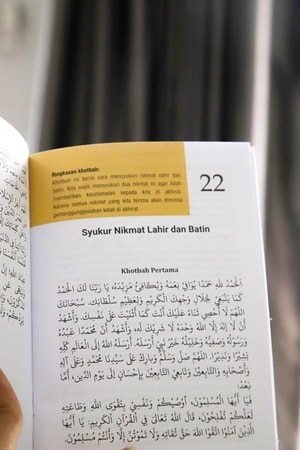 Ringkasan khotbah:
Khotbah ini berisi cara mensyukuri nikmat lahir dan
batin. Kita wajib mensyukuri dua nikmat ini agar Allah
memberikan keselamatan kepada kita di akhirat.
Karena semua nikmat yang kita terima akan dimintai
pertanggungjawaban kelak di akhirat.
22
Syukur Nikmat Lahir dan Batin
Khotbah Pertama
اَلْحَمْدُ لِلّٰهِ حَمْدًا يُوَافِيْ نِعَمَهُ وَيُكَافِئُ مَزِيْدَهُ، يَا رَبَّنَا لَكَ الْحَمْدُ
كَمَا يَنْبَغِيْ لِجَلَالِ وَجْهِكَ الْكَرِيْمِ وَلِعَظِيْمِ سُلْطَانِكَ. سُبْحَانَكَ
اللّٰهُمَّ لَا أُحْصِيْ ثَنَاءً عَلَيْكَ أَنْتَ كَمَا أَثْنَيْتَ عَلَى نَفْسِكَ. وَأَشْهَدُ
أَنْ لَا إِلٰهَ إِلَّا اللهُ وَحْدَهُ لَا شَرِيْكَ لَهُ، وَأَشْهَدُ أَنَّ مُحَمَّدًا عَبْدُهُ
وَرَسُوْلُهُ وَصَفِيُّهُ وَخَلِيْلُهُ خَيْرُ نَبِيٍّ أَرْسَلَهُ. أَرْسَلَهُ اللهُ إِلَى الْعَالَمِ كُلِّهِ
بَشِيْرًا وَنَذِيْرًا. اللّٰهُمَّ صَلِّ وَسَلِّمْ وَبَارِكْ عَلَى سَيِّدِنَا مُحَمَّدٍ وَعَلَى آلِهِ
وَأَصْحَابِهِ وَالتَّابِعِيْنَ وَتَابِعِي التَّابِعِيْنَ بِإِحْسَانٍ إِلَى يَوْمِ الدِّيْنِ، أَمَّا
بَعْدُ.
فَيَا أَيُّهَا الْمُسْلِمُوْنَ، أُوْصِيْكُمْ وَنَفْسِيْ بِتَقْوَى اللهِ وَطَاعَتِهِ
لَعَلَّكُمْ تُفْلِحُوْنَ، قَالَ اللهُ تَعَالَى فِي الْقُرْآنِ الْكَرِيْمِ: يَا أَيُّهَا
الَّذِيْنَ آمَنُوْا اتَّقُوا اللهَ حَقَّ تُقَاتِهِ وَلَا تَمُوْتُنَّ إِلَّا وَأَنْتُمْ مُسْلِمُوْنَ.